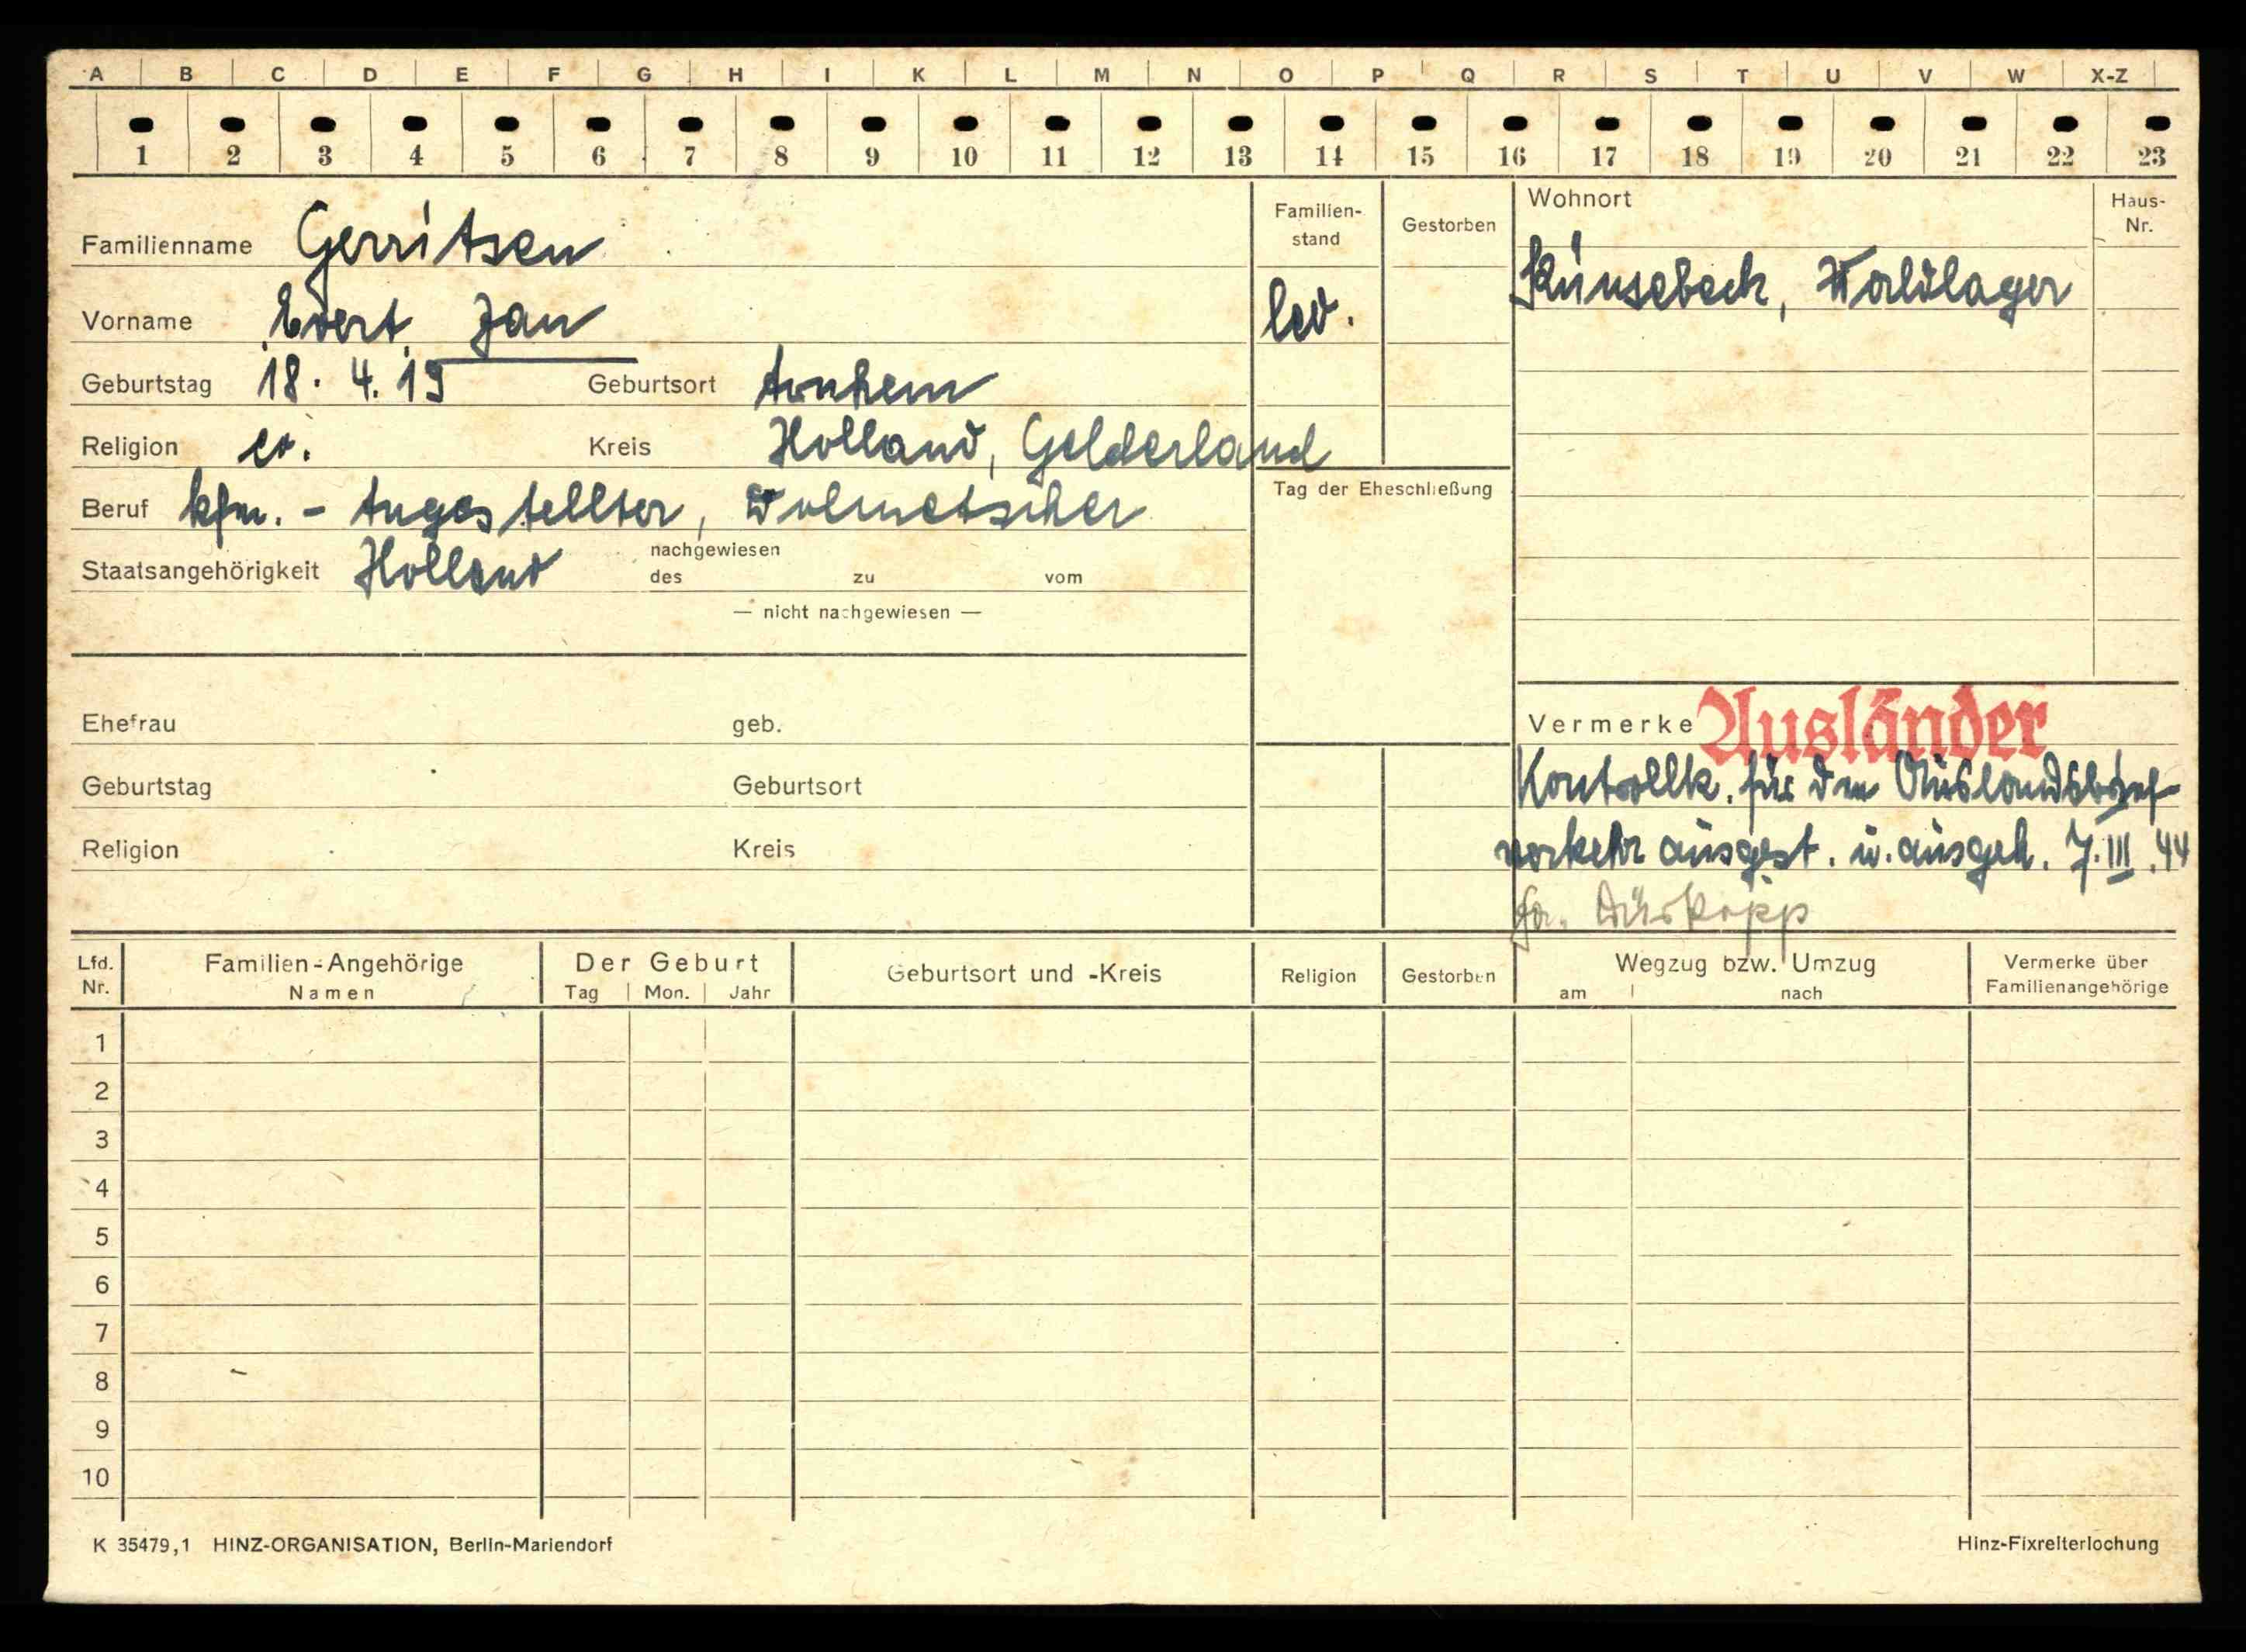 A B C D E F G H I K L M N O P Q R S T U V W X-Z
1 2 3 4 5 6 7 8 9 10 11 12 13 14 15 16 17 18 19 20 21 22 23
Familienname Gerritsen
Vorname Evert Jan
Geburtstag 18. 4. 19 Geburtsort Arnhem
Religion ev. Kreis Holland, Gelderland
Beruf kfm. - Angestellter, Dolmetscher
Staatsangehörigkeit Holland nachgewiesen
des zu vom
— nicht nachgewiesen —
Familien-
stand
led.
Gestorben
Tag der Eheschließung
Wohnort
Haus-
Nr.
Künsebeck, Waldlager
Ehefrau geb.
Geburtstag Geburtsort
Religion Kreis
Vermerke Ausländer
Kontrollk. für den Auslandsbrief
verkehr ausgest. u. ausgeh. 7.III.44
Fa. Dürkopp
Lfd.
Nr.
Familien-Angehörige
Namen
Der Geburt
Tag Mon. Jahr
Geburtsort und -Kreis
Religion
Gestorben
Wegzug bzw. Umzug
am nach
Vermerke über
Familienangehörige
1
2
3
4
5
6
7
8
9
10
K 35479,1 HINZ-ORGANISATION, Berlin-Mariendorf
Hinz-Fixreiterlochung